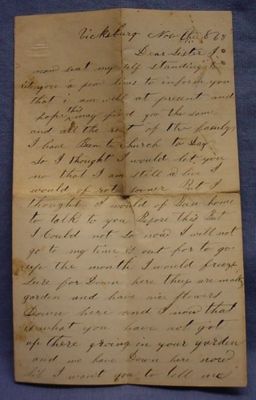 Vicksburg Nov the 8
Dear Sister
now seat my self standing to
you a few lines to inform you
that i am well at present and
hope this may find you the same
and all the rest of the family
I have Ben to church to Day
So I thought I would let you
no that I am still a live I
would of rote sooner But I
thought I would of Bin home
to talk to you Before this But
I Could not So now I will not
go to my time is out for to go
up the month I would freeze
Sure for Down here they are making
garden and have nice flowers
Down here and I now that
is what you have not got
up there growing in your garden
and we have Down here now
I want you to tell me